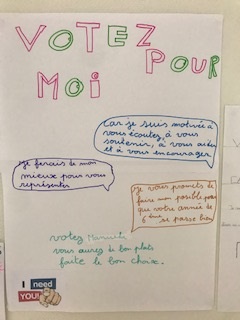 VOTEZ
POUR
MOI
Car je suis motivée a
vous écoutez, à vous
soutenir, à vous aider
et à vous encourager.
Je ferais de mon
mieux pour vous
représenter
Je vous promets de
faire mon possible pour
que votre année de
6ème se passe bien
votez
vous aurez de bon plats
faite le bon choix.
I need
YOU!